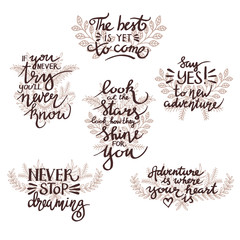 The best
is yet
to come
if you
never
try
you'll
never
know
look
at the
stars
look how they
shine
for
you
Say
YES!
to new
adventure
NEVER
STOP
dreaming
Adventure
is where
your heart
is